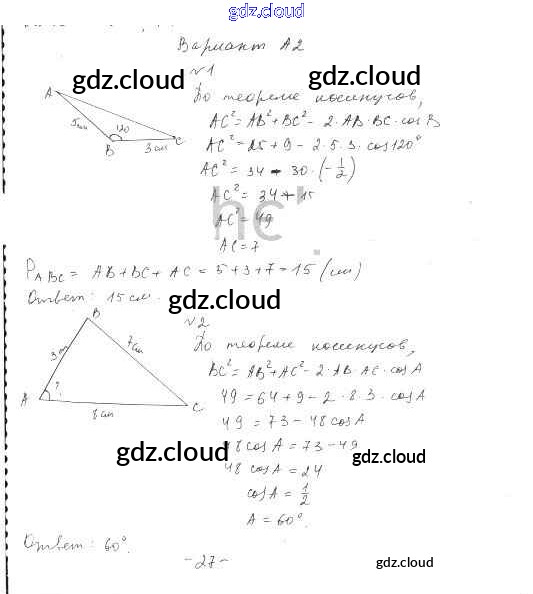 gdz.cloud
Вариант А2
№1
gdz.cloud
gdz.cloud
A
5см
120
B
3 см
C
По теореме косинусов,
AC² = AB² + BC² - 2·AB·BC·cosB
AC² = 25 + 9 - 2·5·3·cos120°
AC² = 34 - 30·(-1/2)
AC² = 34 + 15
AC² = 49
AC = 7
P_ABC = AB + BC + AC = 5 + 3 + 7 = 15 (см)
Ответ: 15 см.
gdz.cloud
№2
B
3 см
7 см
A
?
8 см
C
По теореме косинусов,
BC² = AB² + AC² - 2·AB·AC·cosA
49 = 64 + 9 - 2·8·3·cosA
49 = 73 - 48cosA
48cosA = 73 - 49
gdz.cloud
gdz.cloud
48 cosA = 24
cosA = 1/2
A = 60°.
Ответ: 60°.
- 27 -
gdz.cloud